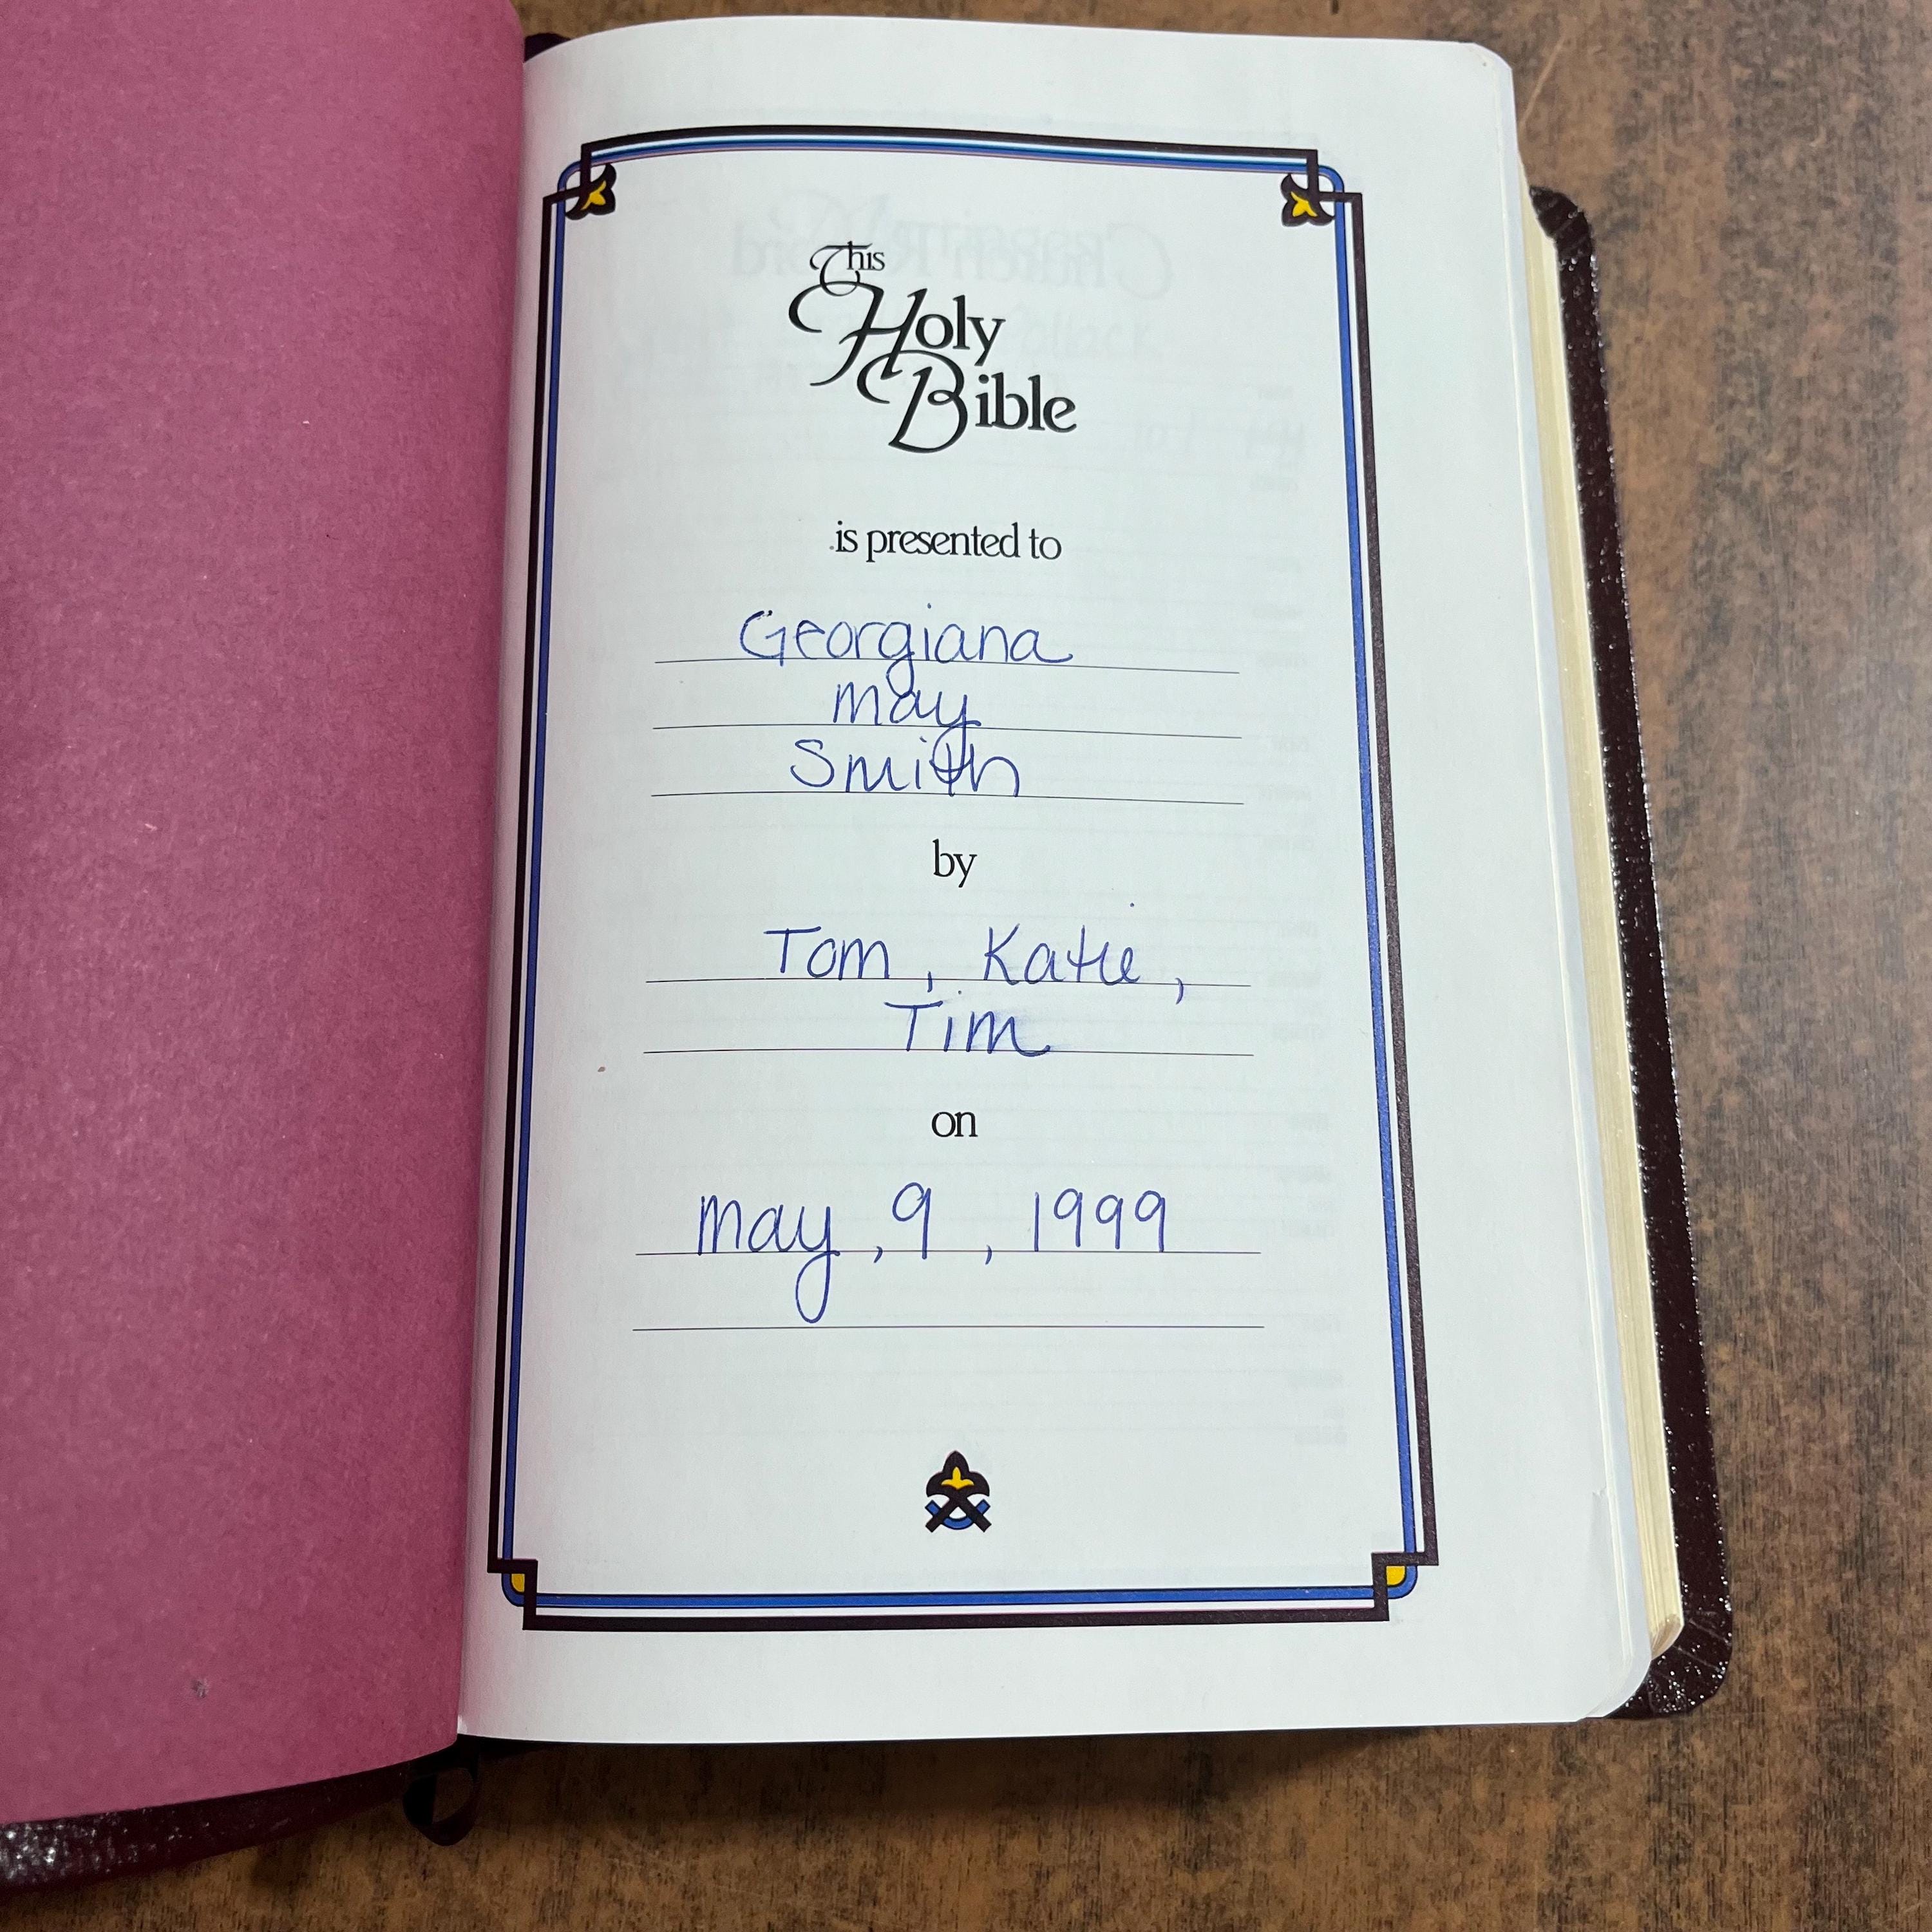 This
Holy
Bible
is presented to
Georgiana
may
Smith
by
Tom, Katie,
Tim
on
may, 9, 1999